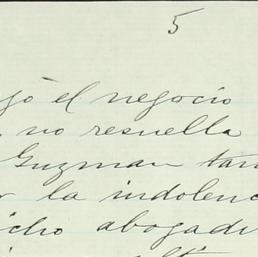 5
jó el negocio
no resuella
Guzman tan
r la indolenc
icho abogad